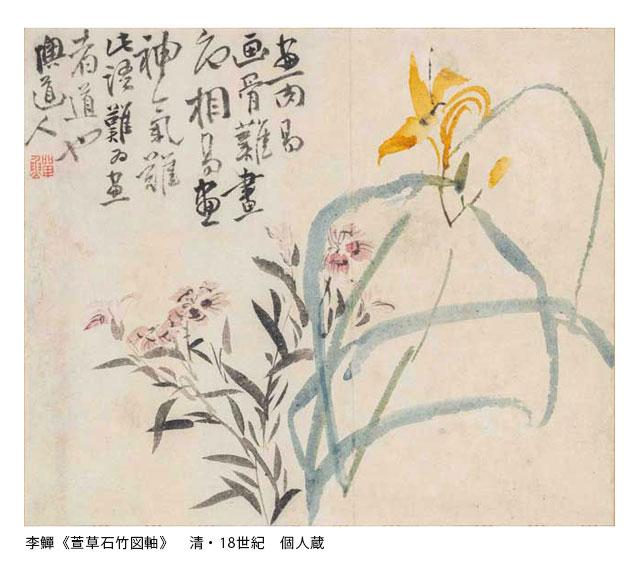 畫肉易
画骨難畫
色相易畫
神氣難
此語難为畫
者道也
懊道人
李鱓《萱草石竹図軸》　清・18世紀　個人蔵